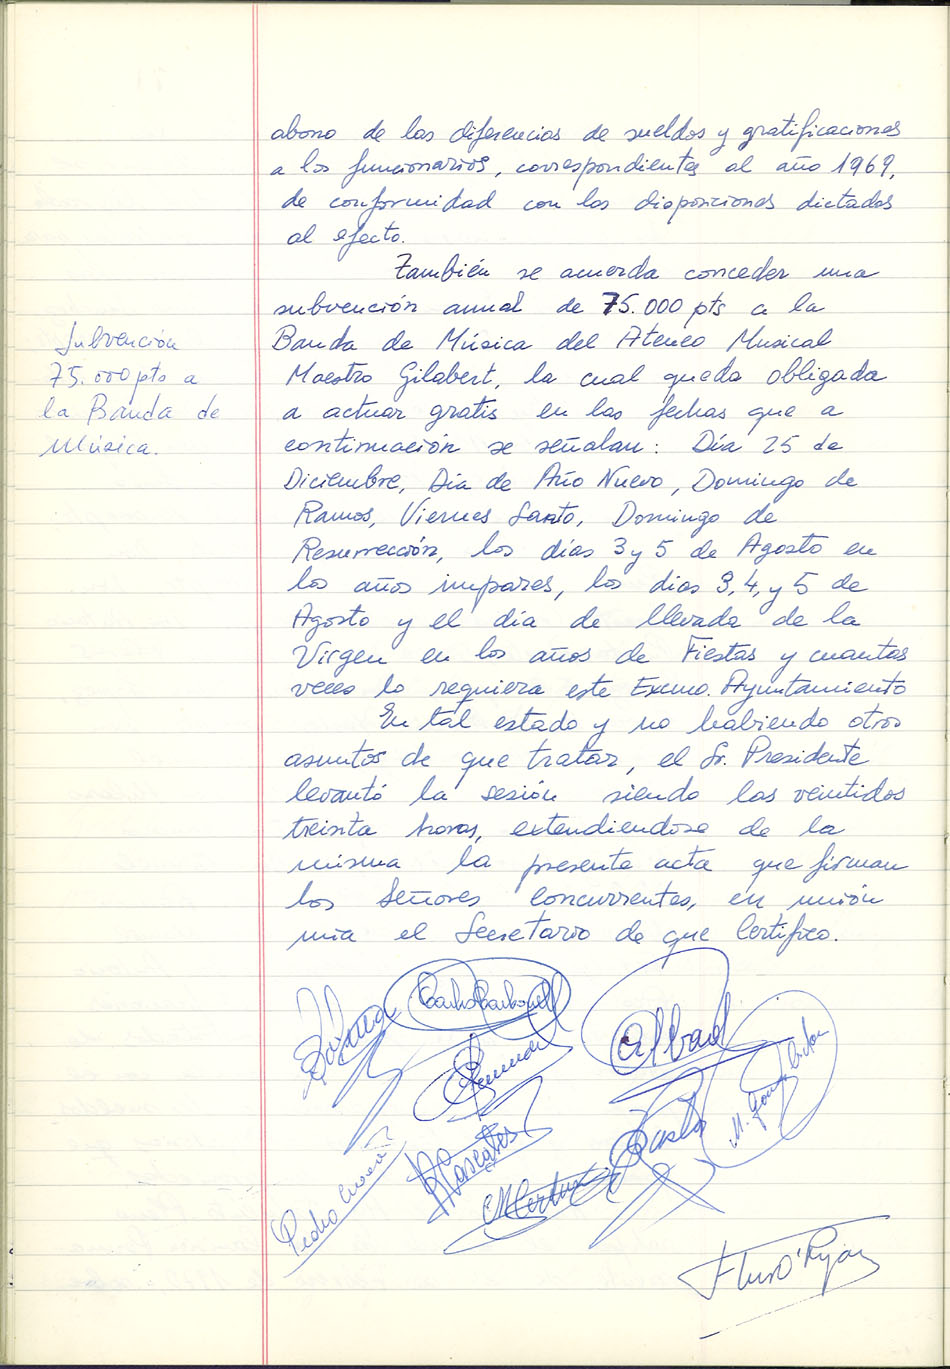 abono de las diferencias de sueldos y gratificaciones
a los funcionarios, correspondientes al año 1969,
de conformidad con las disposiciones dictadas
al efecto.
También se acuerda conceder una
subvención anual de 75.000 pts a la
Banda de Música del Ateneo Musical
Maestro Gilabert, la cual queda obligada
a actuar gratis en las fechas que a
continuación se señalan: Día 25 de
Diciembre, Dia de Año Nuevo, Domingo de
Ramos, Viernes Santo, Domingo de
Resurrección, los días 3 y 5 de Agosto en
los años impares, los dias 3, 4, y 5 de
Agosto y el día de llevada de la
Virgen en los años de Fiestas y cuantas
veces lo requiera este Excmo. Ayuntamiento
Subvención
75.000 pts a
la Banda de
Música.
En tal estado y no habiendo otros
asuntos de que tratar, el Sr. Presidente
levantó la sesión siendo las veintidos
treinta horas, extendiendose de la
misma la presente acta que firman
los Señores concurrentes, en unión
mia el Secretario de que Certifico.
Pedro